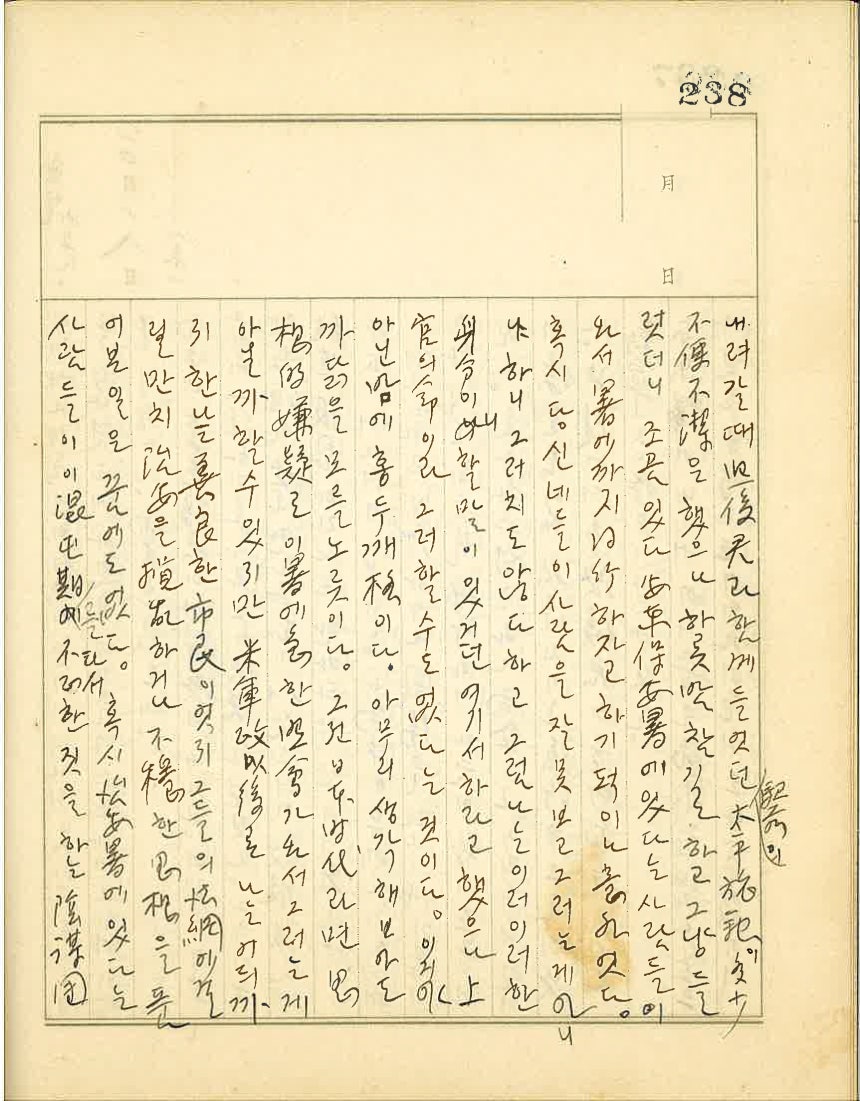 238
月
日
내려갈때 炅俊君과 함께 들엇던 太平旅館이 多少
不便不潔은 했으나 하룻밤 잘길 하고 그냥 들
럿더니 조곰 있다 安東保安署에 있다는 사람들이
와서 署에까지 하자고 하기
혹시 당신네들이 사람을 잘못보고 그러는게 아니
냐 하니 그러치도 않다 하고 그럼 나는 이러이러한
身分이니 할 말이 있거던 여기서 하라고 했으나 上
官의 命이라 그러할 수도 없다는 것이다.
아닌 밤에 홍두깨 格이다. 아무리 생각해 보아도
까닭을 모를 노릇이다. 그전 日本時代라면 思
想的 嫌疑로 이 署에 한 가 와서 그러는게
아닐까 할 수 있지만 米軍政以後론 나는 어디까
지 한나는 善良한 市民이엿지 그들의 法網에 걸
릴만치 治安을 攪亂하거나 不穩한 思想을 품
어본 일은 꿈에도 없다. 혹시 保安署에 있다는
사람들이 이 混屯期에 不正한 짓을 하는 陰謀団